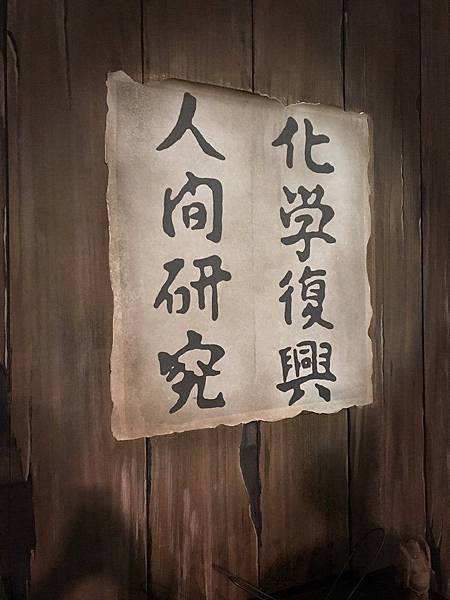 化学復興
人间研究